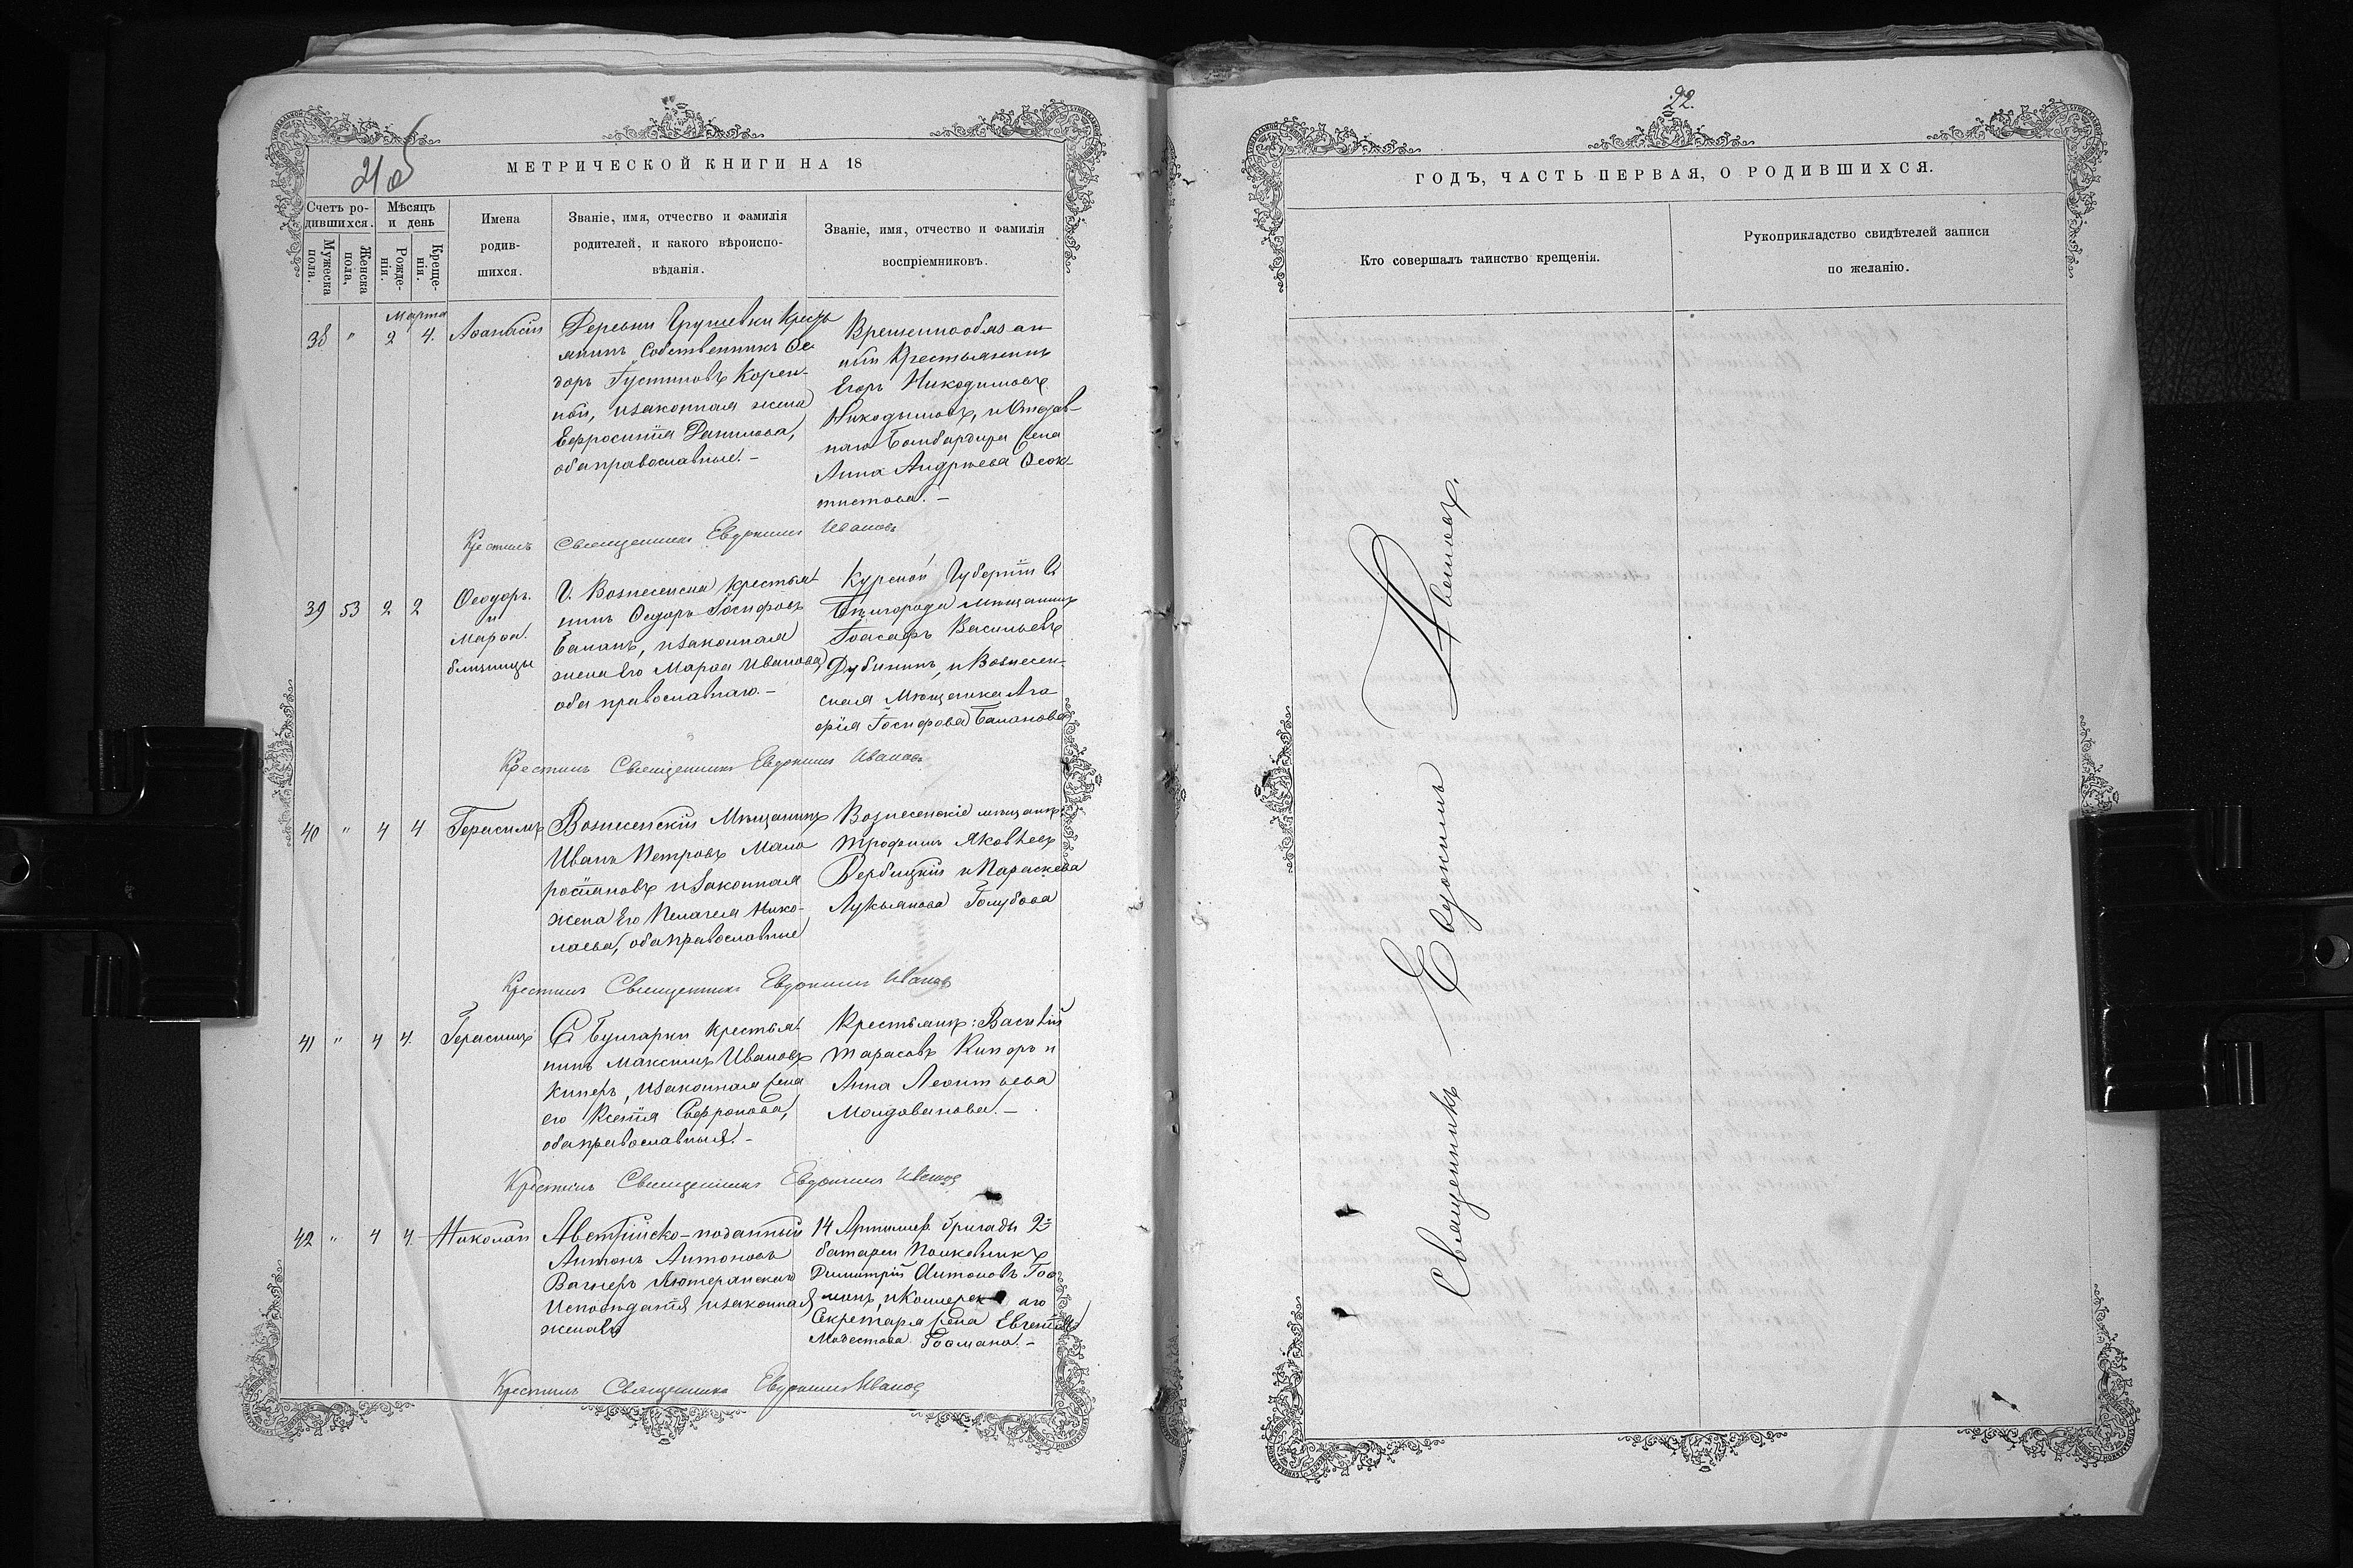 МЕТРИЧЕСКОЙ КНИГИ НА 18
Счетъ ро-
дившихся.
Мужеска
пола.
Женска
пола.
Мѣсяцъ
и день
Рожде-
нія.
Креще-
нія.
Имена
родив-
шихся.
Званіе, имя, отчество и фамилія
родителей, и какого вѣроиспо-
вѣданія.
Званіе, имя, отчество и фамилія
воспріемниковъ.
Марта
38 " 2 4. Аѳанасій
Деревни Грушевки Кресть
янинъ Собственникъ Ѳе
доръ Іустиновъ Корен-
ной, изаконная жена
Евфросинія Данилова,
оба православные. -
Временнообязан
ный Крестьянинъ
Егоръ Никодимовъ
Никодимовъ, и Отстав-
наго Бомбардира жена
Анна Андреева Ѳеок-
тистова. -
Крестилъ Священникъ Евдокимъ Ивановъ
39 53 2 2 Ѳеодоръ
и
Марѳа
близнецы
Г. Вознесенска крестья
нинъ Ѳедоръ Іосифовъ
Баланъ, изаконная
жена его Марѳа Иванова,
оба православнаго. -
Курской Губерніи
Бѣлгорода мѣщанинъ
Іоасафъ Васильевъ
Дубининъ, и Вознесен-
ская Мѣщанка Ага
фія Іосифова Баланова
Крестилъ Священникъ Евдокимъ Ивановъ
40 " 4 4 Герасимъ
Вознесенскій Мѣщанинъ
Иванъ Петровъ Мало
росіяновъ изаконная
жена Его Пелагея Нико-
лаева, оба православные
Вознесенскіе мѣщане:
Трофимъ Яковлевъ
Вербицкій и Параскева
Лукьянова Голубова
Крестилъ Священникъ Евдокимъ Ивановъ
41 " 4 4. Герасимъ
С. Булгарки Крестья
нинъ Максимъ Ивановъ
Киперъ, изаконная жена
его Ксенія Софронова,
оба православныя. -
Крестьяне: Василій
Тарасовъ Киперъ и
Анна Леонтьева
Молдованова. -
Крестилъ Священникъ Евдокимъ Ивановъ
42 " 4 4. Николай
Австрійско-поданный
Антонъ Антоновъ
Вагнеръ Лютеранскаго
Исповѣданія изаконная
жена его
14 Артиллер. бригады 2й
батареи Полковникъ
Димитрій Антоновъ
Секретаря жена Евгенія
Модестова
Крестилъ Священникъ Евдокимъ Ивановъ
22.
ГОДЪ, ЧАСТЬ ПЕРВАЯ, О РОДИВШИХСЯ.
Кто совершалъ таинство крещенія.
Рукоприкладство свидѣтелей записи
по желанію.
Священникъ Евдокимъ Ивановъ.